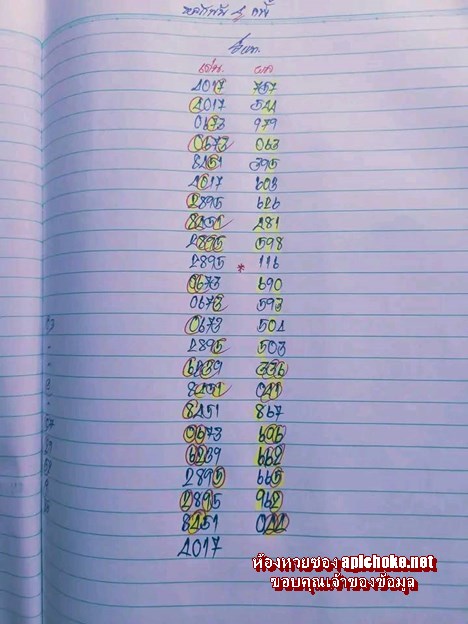 4017 757
4017 544
0673 979
0673 063
8451 395
4017 603
2895 626
8451 281
2895 598
2895 * 116
0673 690
0673 593
0673 504
2895 503
6239 336
8451 041
8451 867
0673 696
6239 662
2895 665
2895 962
8451 044
4017
ห้องหวยซอง apichoke.net
ขอบคุณเจ้าของข้อมูล